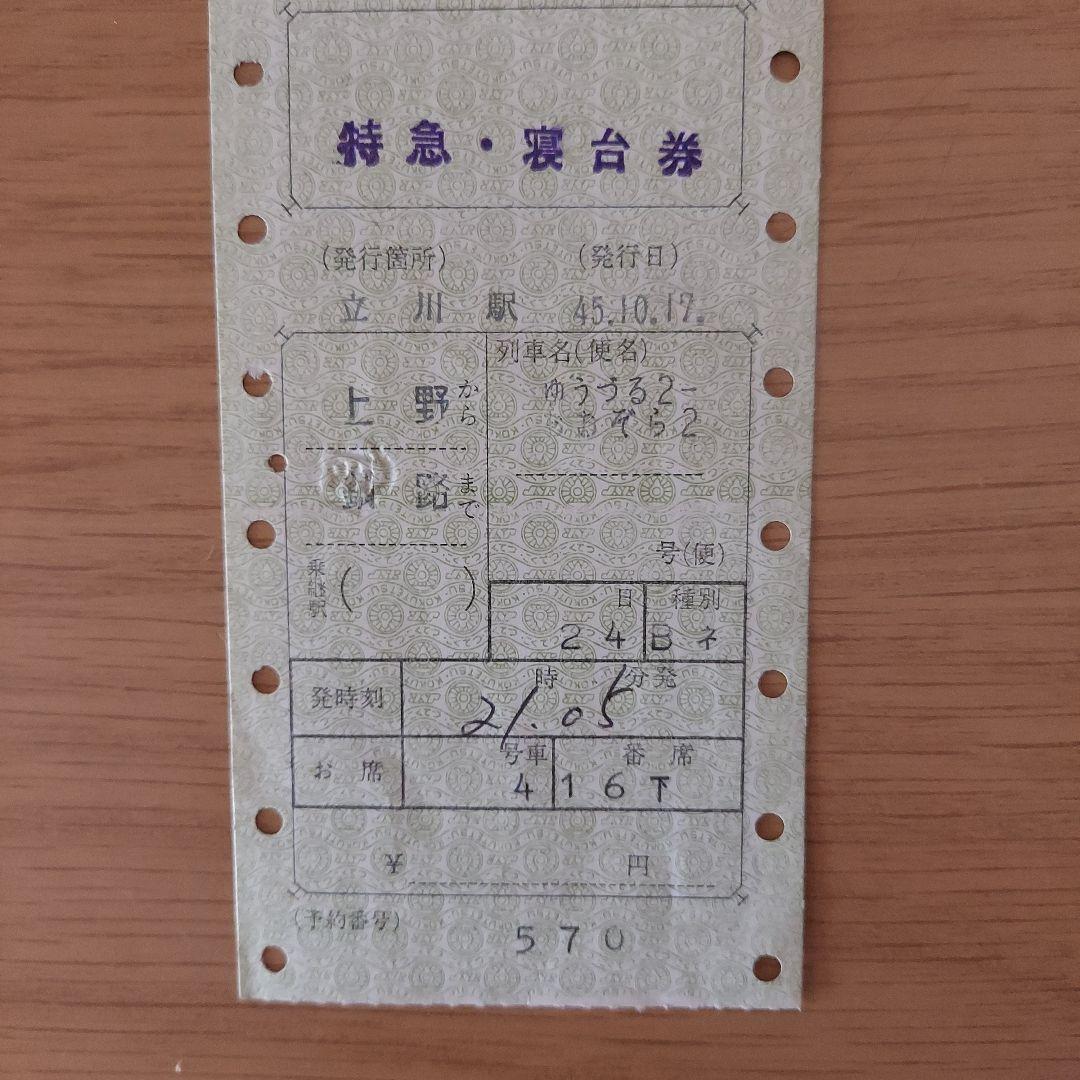 特急・寝台券
(発行箇所) (発行日)
立川駅 45.10.17.
列車名(便名)
上野から ゆうづる2-
おぞら2
釧路まで
号(便)
乗継駅( )
日 種別
24 Bネ
時 分発
発時刻 21.05
号車 番席
お席 4 16下
¥ 円
(予約番号)
570